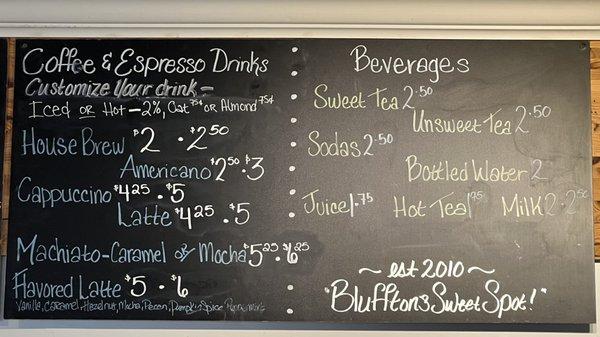 Coffee & Espresso Drinks
Customize Your drink -
Iced or Hot - 2%, Oat 75¢ or Almond 75¢
House Brew $2 . 2.50
Americano $2.50 . $3
Cappuccino $4.25 . $5
Latte $4.25 . $5
Machiato - Caramel or Mocha $5.25 . $6.25
Flavored Latte $5 . $6
Vanilla, Caramel, Hazelnut, Mocha, Pecan, Pumpkin Spice
Beverages
Sweet Tea 2.50
Unsweet Tea 2.50
Sodas 2.50
Bottled Water 2
Juice 1.75
Hot Tea 1.95
Milk 2 . 2.50
~ est 2010 ~
"Blufftons Sweet Spot!"